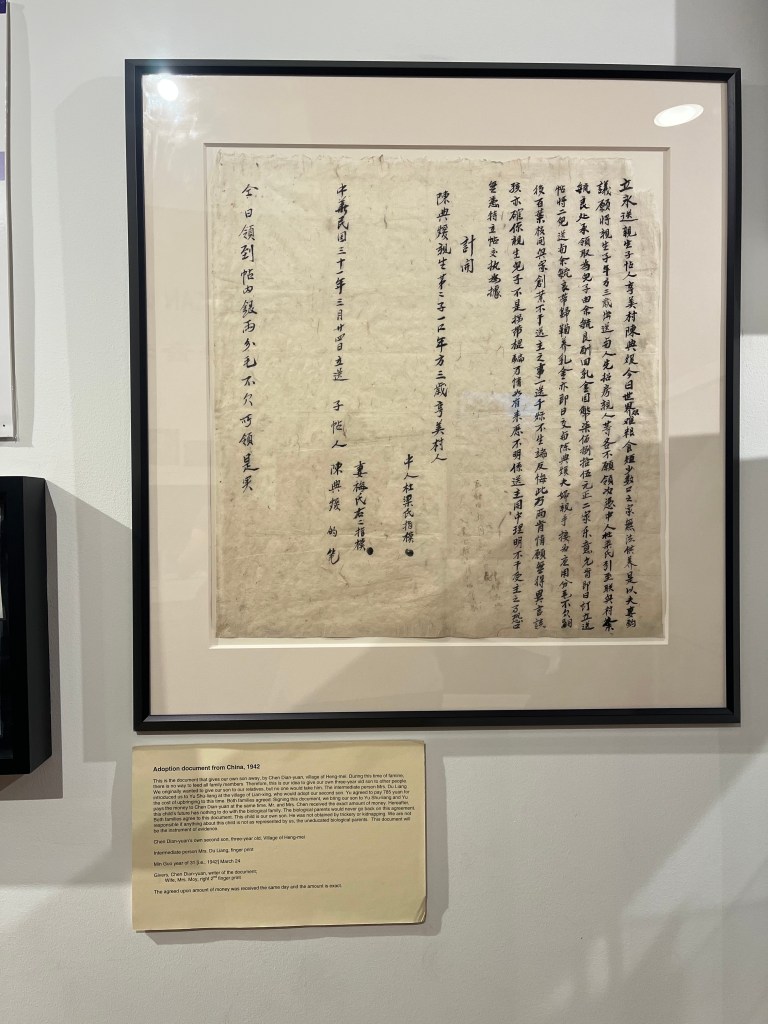 立永送親生子帖人亨美村陳典煖今日世界艰難粮食短少数口之家無法供養是以夫妻酌
議願将親生子年方三歲情送与人先招房親人等各不願領次憑中人杜梁氏引至联興村余
毓良处承領取為兒子由余毓良酬回乳金国幣柒佰捌拾伍元正二家乐意允肯即日订立送
帖将二兒送与余毓良帶歸鞠养乳金亦即日交与陳典煖夫婦親手接为应用分毛不欠嗣
後百業枝同與余創業不干送主之事一送千休不生端反悔此乃兩肯情願無得異言該
孩亦確係親生兒子不是拐带提騙乃情如有来歷不明係送主同中理明不干受主之事恐口
無憑特立帖交执為據
計開
陳典煖親生第二子一口年方三歲亨美村人
中人杜梁氏指模
中華民国三十一年三月廿四日立送子帖人陳典煖的笔
妻梅氏右二指模
今日領到帖内銀兩分毛不欠所領是实
Adoption document from China, 1942
This is the document that gives our own son away, by Chen Dian-yuan, village of Heng-mei: During this time of famine,
there is no way to feed all family members. Therefore, this is our idea to give our own three-year old son to other people.
We originally wanted to give our son to our relatives, but no one would take him. The intermediate person Mrs. Du Liang
introduced us to Yu Shu-liang at the village of Lian-xing, who would adopt our second son. Yu agreed to pay 785 yuan for
the cost of upbringing to this time. Both families agreed. Signing this document, we bring our son to Yu Shu-liang and Yu
pays the money to Chen Dian-yuan at the same time. Mr. and Mrs. Chen received the exact amount of money. Hereafter,
this child's future has nothing to do with the biological family. The biological parents would never go back on this agreement.
Both families agree to this document. This child is our own son. He was not obtained by trickery or kidnapping. We are not
responsible if anything about this child is not as represented by us, the uneducated biological parents. This document will
be the instrument of evidence.
Chen Dian-yuan's own second son, three-year old. Village of Heng-mei
Intermediate person Mrs. Du Liang, finger print
Min Guo year of 31 [i.e., 1942] March 24
Givers, Chen Dian-yuan, writer of the document,
Wife, Mrs. Moy, right 2nd finger print
The agreed upon amount of money was received the same day and the amount is exact.